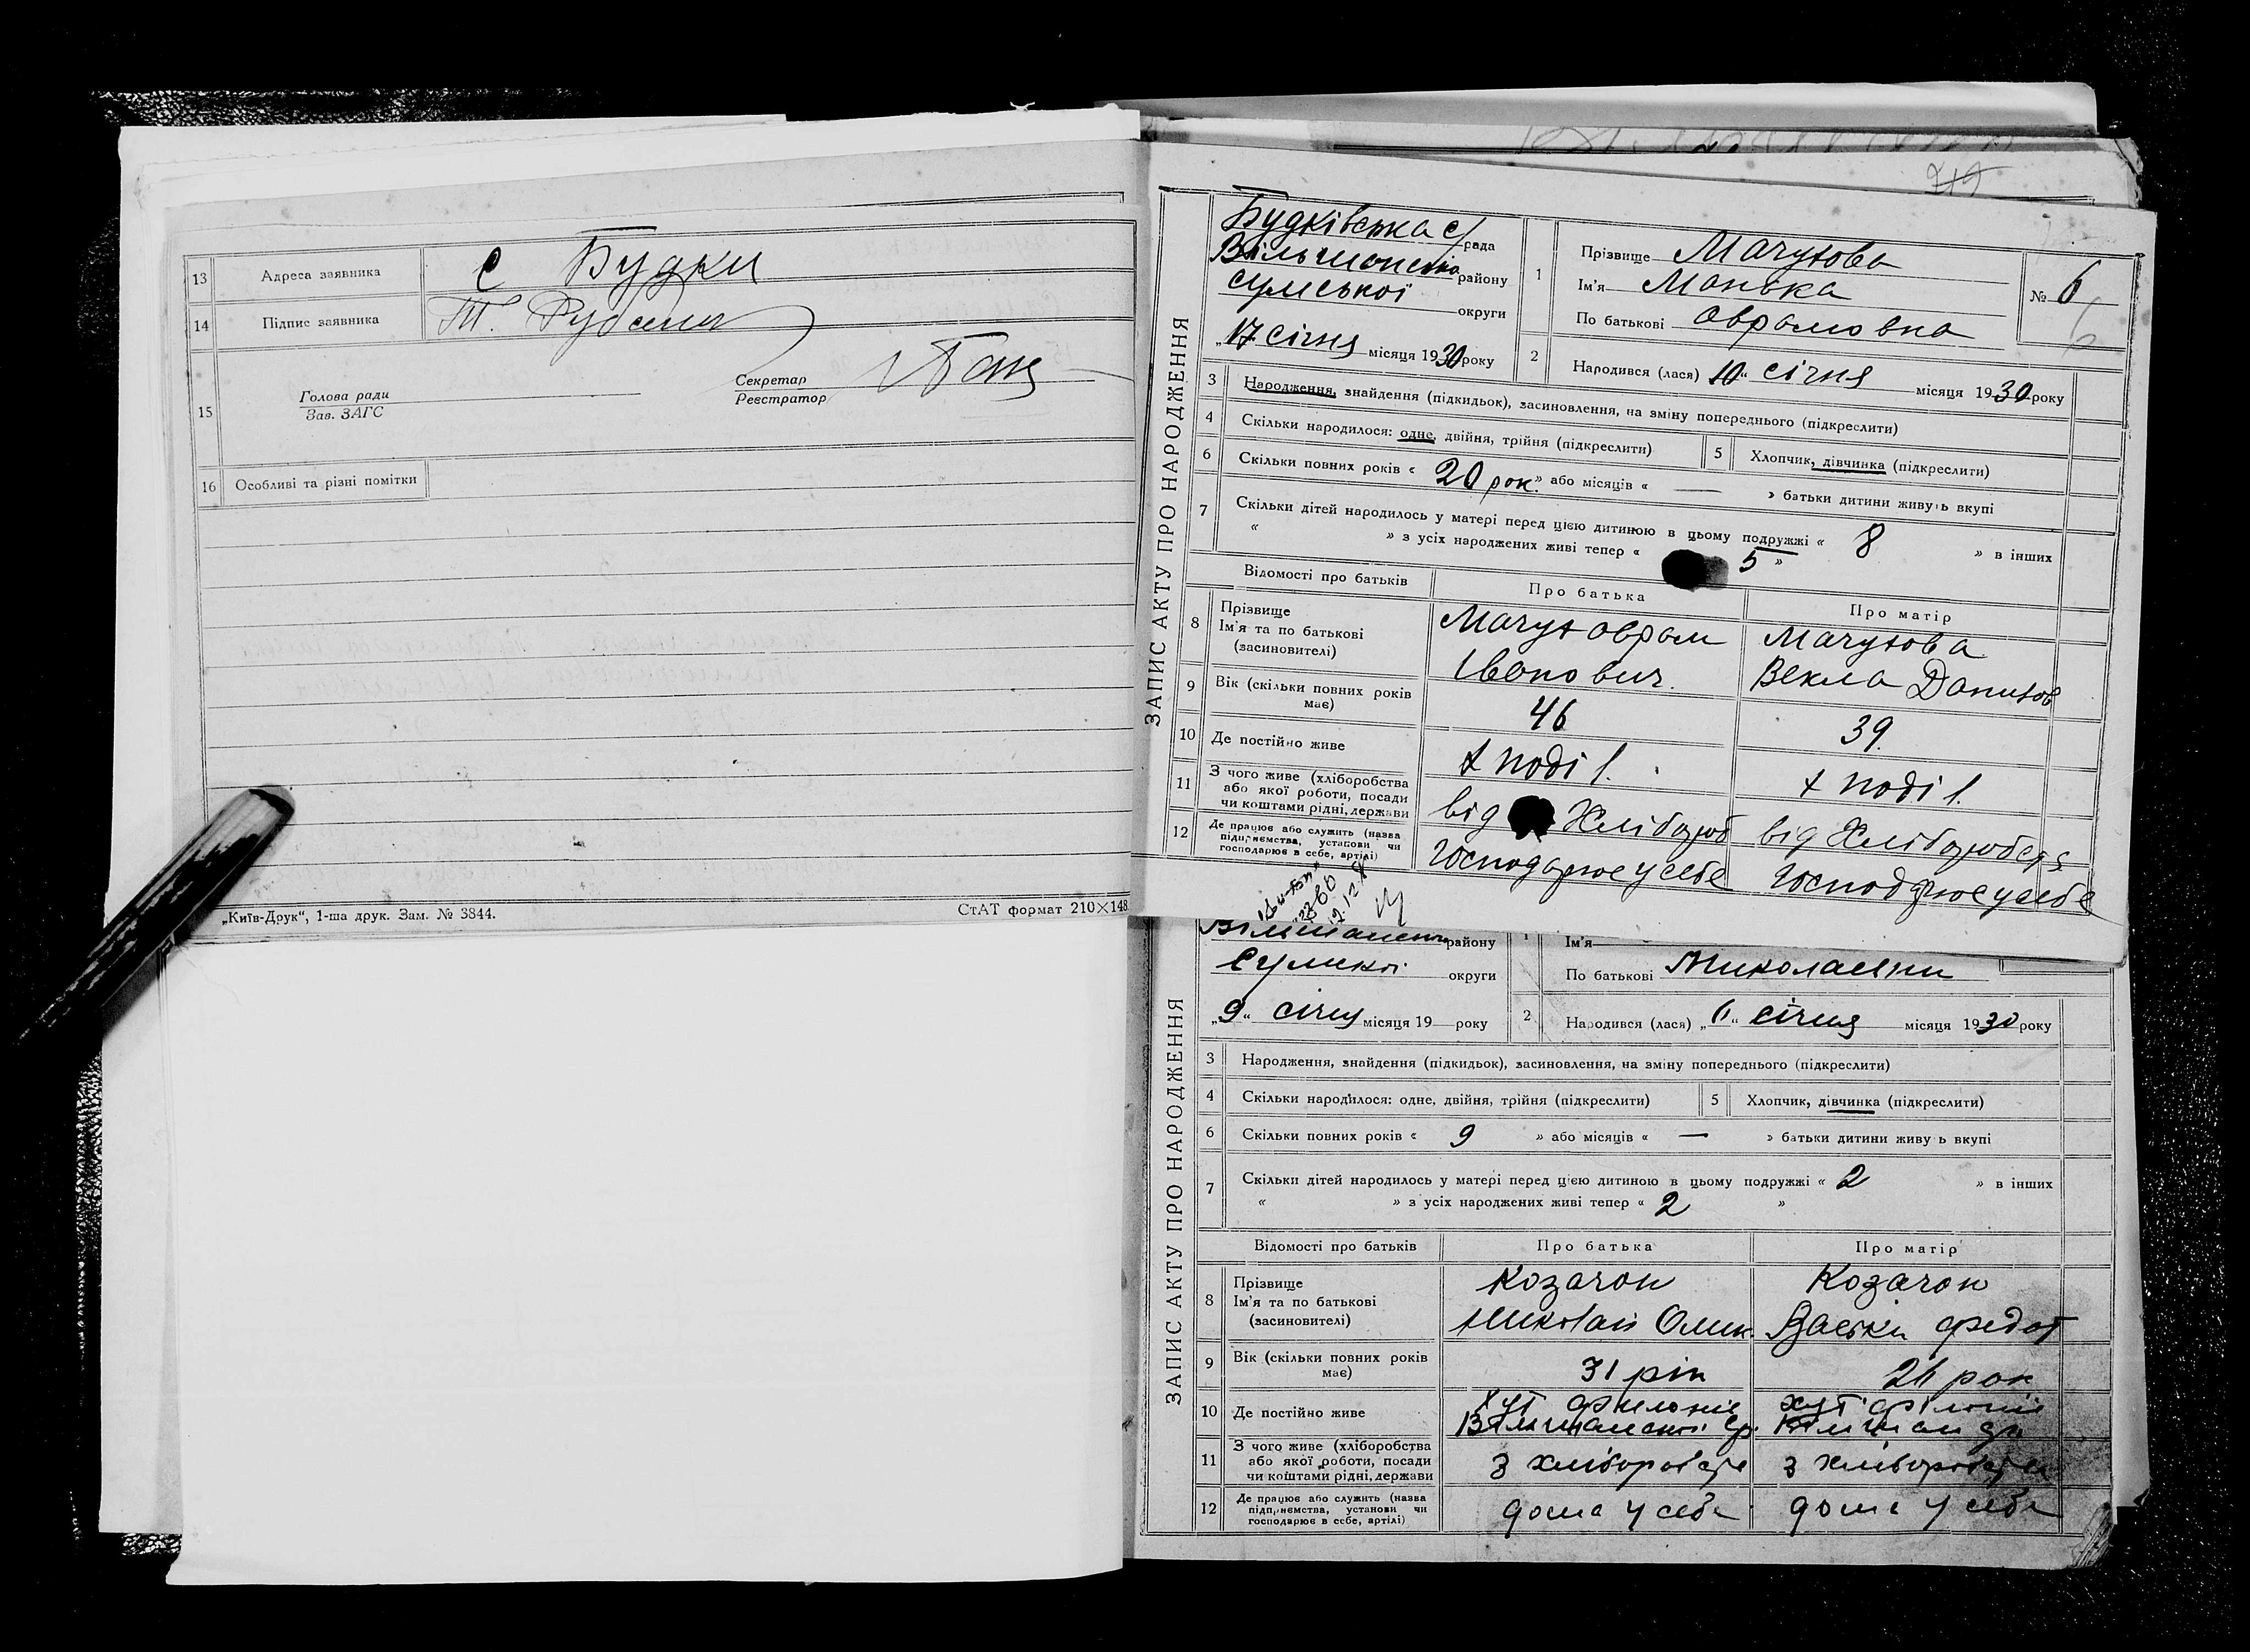 13 Адреса заявника с Будки
14 Підпис заявника
15 Голова ради
Зав. ЗАГС
Секретар
Реєстратор
16 Особливі та різні помітки
„Київ-Друк“, 1-ша друк. Зам. № 3844.
СтАТ формат 210×148
ЗАПИС АКТУ ПРО НАРОДЖЕННЯ
Будківська с/рада
району
Сумської округи
„17 січня місяця 1930 року
1 Прізвище Мачухова
Ім'я Манька
По батькові Аврамовна
№ 6
2 Народився (лася) 10“ січня місяця 1930 року
3 Народження, знайдення (підкидьок), засиновлення, на зміну попереднього (підкреслити)
4 Скільки народилося: одне, двійня, трійня (підкреслити)
5 Хлопчик, дівчинка (підкреслити)
6 Скільки повних років « 20 рок. » або місяців « — » батьки дитини живуть вкупі
7 Скільки дітей народилось у матері перед цією дитиною в цьому подружжі « 8 » в інших
« » з усіх народжених живі тепер « 5 »
Відомості про батьків
Про батька
Про матір
8 Прізвище
Ім'я та по батькові
(засиновителі)
Мачух Аврам
Іванович.
Мачухова
Векла
9 Вік (скільки повних років має)
46
39.
10 Де постійно живе
х поділ.
х поділ.
11 З чого живе (хліборобства
або якої роботи, посади
чи коштами рідні, держави
від Хлібороб
від Хліборобства
12 Де працює або служить (назва
підприємства, установи чи
господарює в себе, артілі)
Господарює у себе
Господарює у себе
ЗАПИС АКТУ ПРО НАРОДЖЕННЯ
району
округи
„9“ січня місяця 19 року
1 Ім'я
По батькові Миколаевни
2 Народився (лася) „6“ січня місяця 1930 року
3 Народження, знайдення (підкидьок), засиновлення, на зміну попереднього (підкреслити)
4 Скільки народилося: одне, двійня, трійня (підкреслити)
5 Хлопчик, дівчинка (підкреслити)
6 Скільки повних років « 9 » або місяців « — » батьки дитини живуть вкупі
7 Скільки дітей народилось у матері перед цією дитиною в цьому подружжі « 2 » в інших
« » з усіх народжених живі тепер « 2 »
Відомості про батьків
Про батька
Про матір
8 Прізвище
Ім'я та по батькові
(засиновителі)
Козачок
Николай
Козачок
Федот
9 Вік (скільки повних років має)
31 рік
рок
10 Де постійно живе
хут
хут
11 З чого живе (хліборобства
або якої роботи, посади
чи коштами рідні, держави
з хліборобства
з хліборобства
12 Де працює або служить (назва
підприємства, установи чи
господарює в себе, артілі)
дома у себе
дома у себе